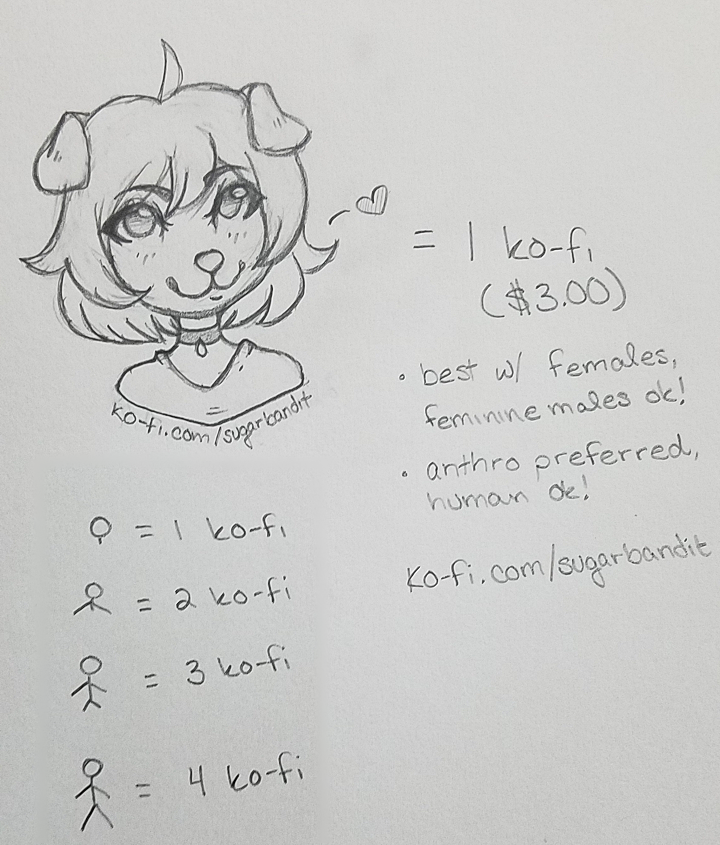 = 1 ko-fi
($3.00)
• best w/ females,
feminine males ok!
• anthro preferred,
human ok!
ko-fi.com/sugarbandit
ko-fi.com/sugarbandit
= 1 ko-fi
= 2 ko-fi
= 3 ko-fi
= 4 ko-fi